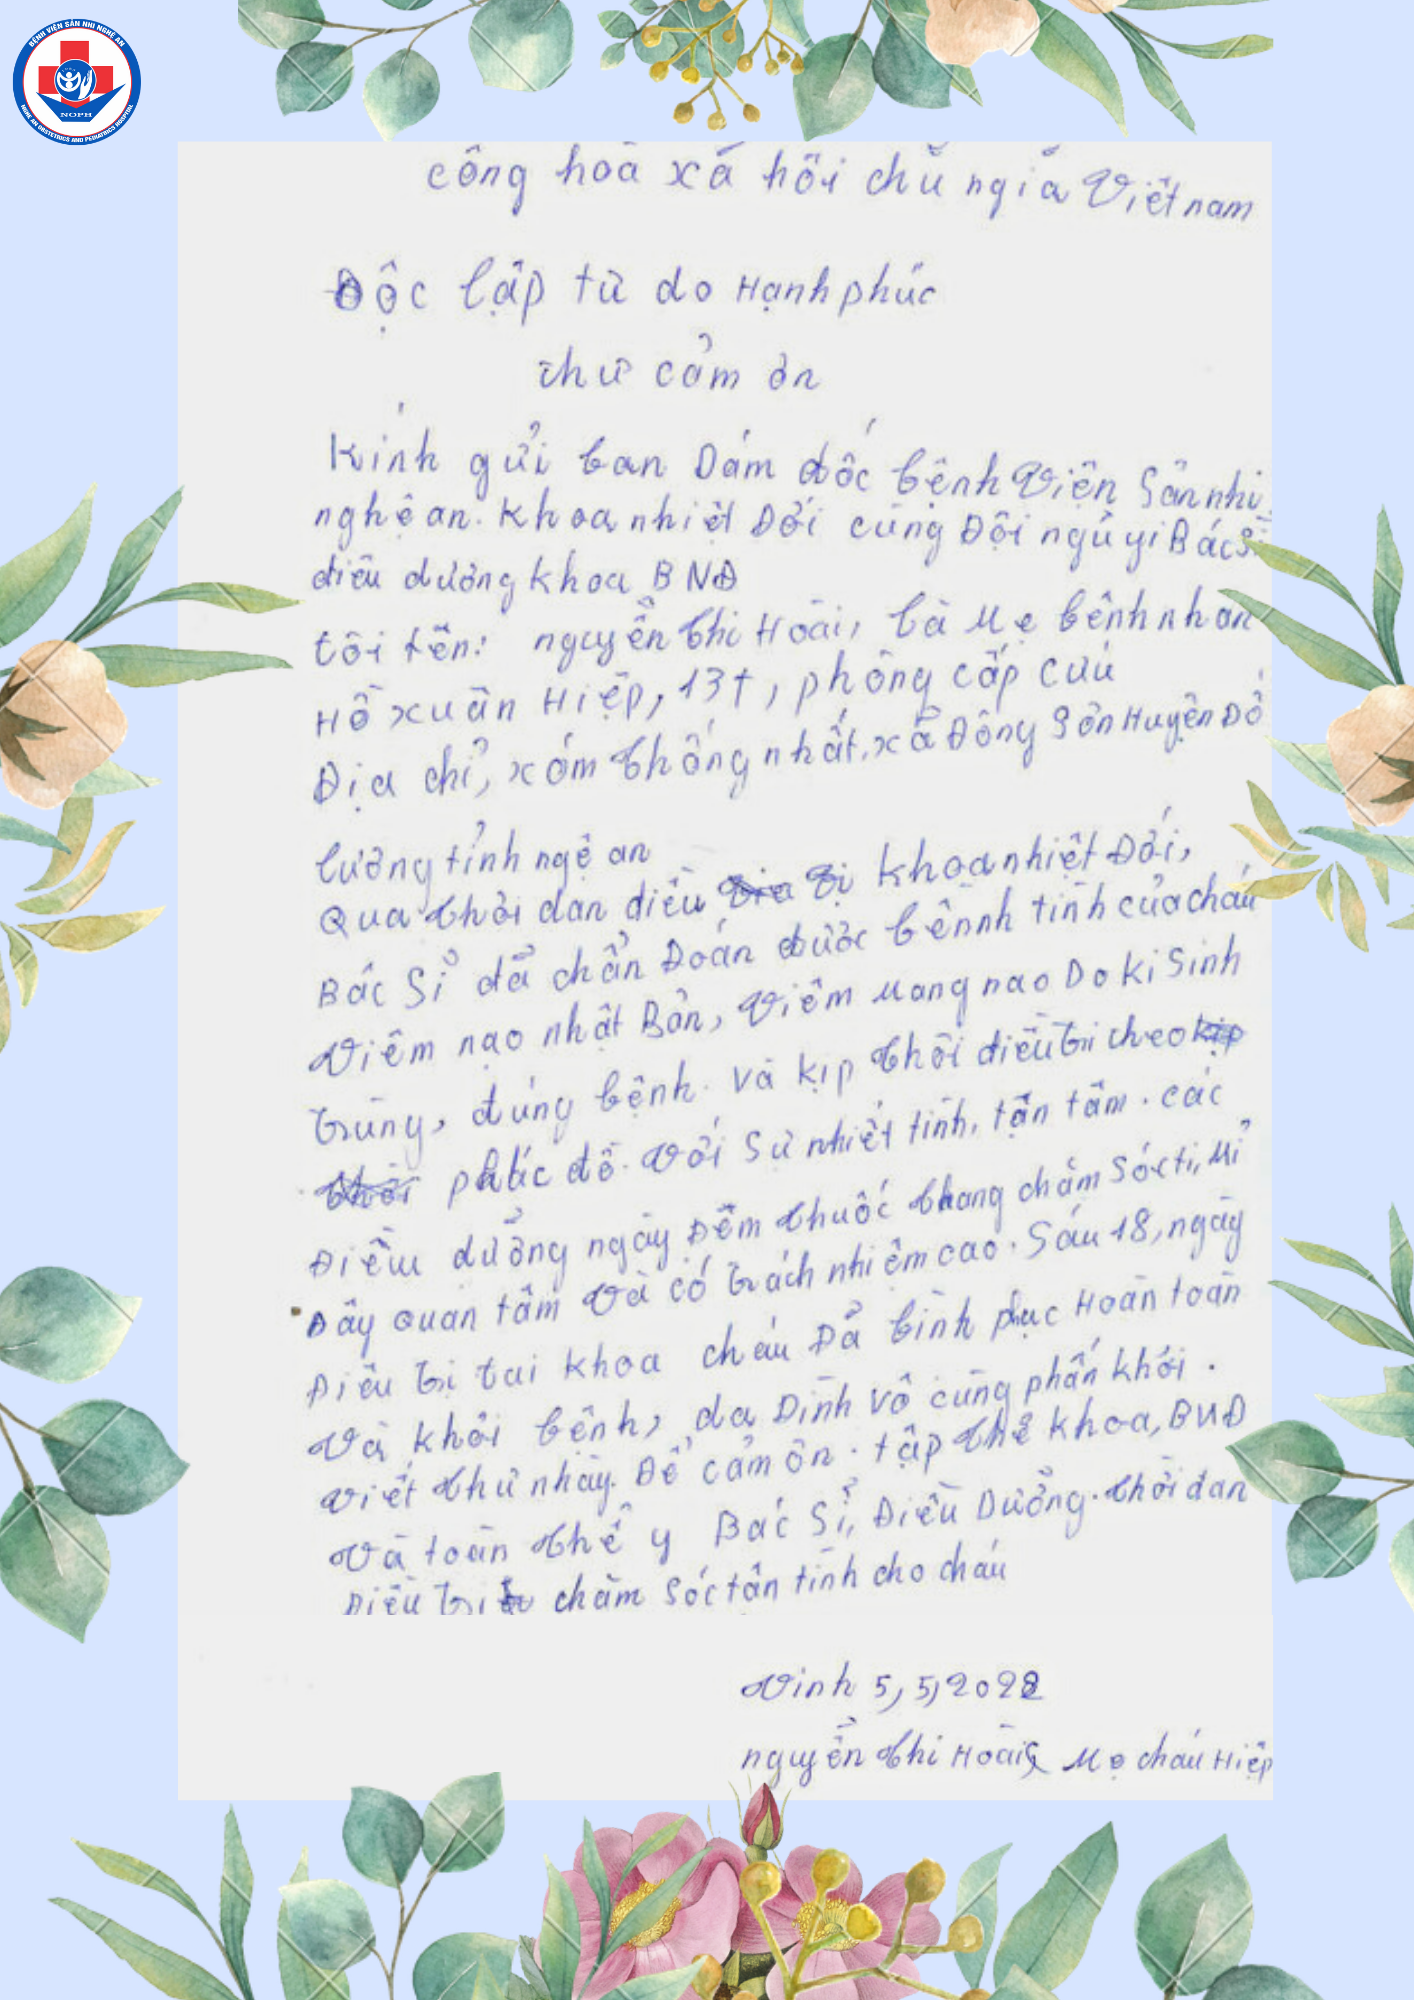 BỆNH VIỆN SẢN NHI NGHỆ AN
NOPH
NGHE AN OBSTETRICS AND PEDIATRICS HOSPITAL
công hoà xã hôi chủ ngiã Việt nam
Độc lập tử do Hạnh phúc
thư cảm ơn
Kính gửi ban Dám đốc bệnh Viện Sản nhi
nghệ an. Khoa nhiệt Đới cùng Đội ngủ yi Bác sĩ
điều dưởng khoa BNĐ
tôi tên: nguyễn thi Hoài, là Mẹ bênh nhan
Hồ xuân Hiệp, 13t, phòng cấp cưú
Địa chỉ, xóm thống nhất, xã Đông Sơn Huyện Đô
lương tỉnh ngệ an
Qua thời dan điều vị khoa nhiệt Đới,
Bác Sỉ đã chẩn Đoán được bênnh tình của cháu
Viêm nạo nhật Bản, Viêm Mang nao Do Ki Sinh
trùng, đúng bệnh. Và kịp thời điều tri theo
phắc đồ. Với Sự nhiệt tình, tận tâm. các
Điều dưởng ngày Đêm thuốc thang chăm Sóc ti, Mỉ
Đầy quan tâm Và có trách nhiệm cao. Sáu 18, ngày
Điều trị tai khoa cháu Đả bình phục Hoàn toàn
Và khỏi bệnh, da Dình vô cùng phấn khới.
Viết thư nhày. Để cảm ơn. tập thể khoa, BNĐ
Và toàn thể y Bác Sỉ, Điều Dưởng. thời dan
Điều tri chăm Sóc tân tình cho cháu
Vinh 5, 5, 2022
nguyễn thi Hoài Mẹ cháu Hiệp